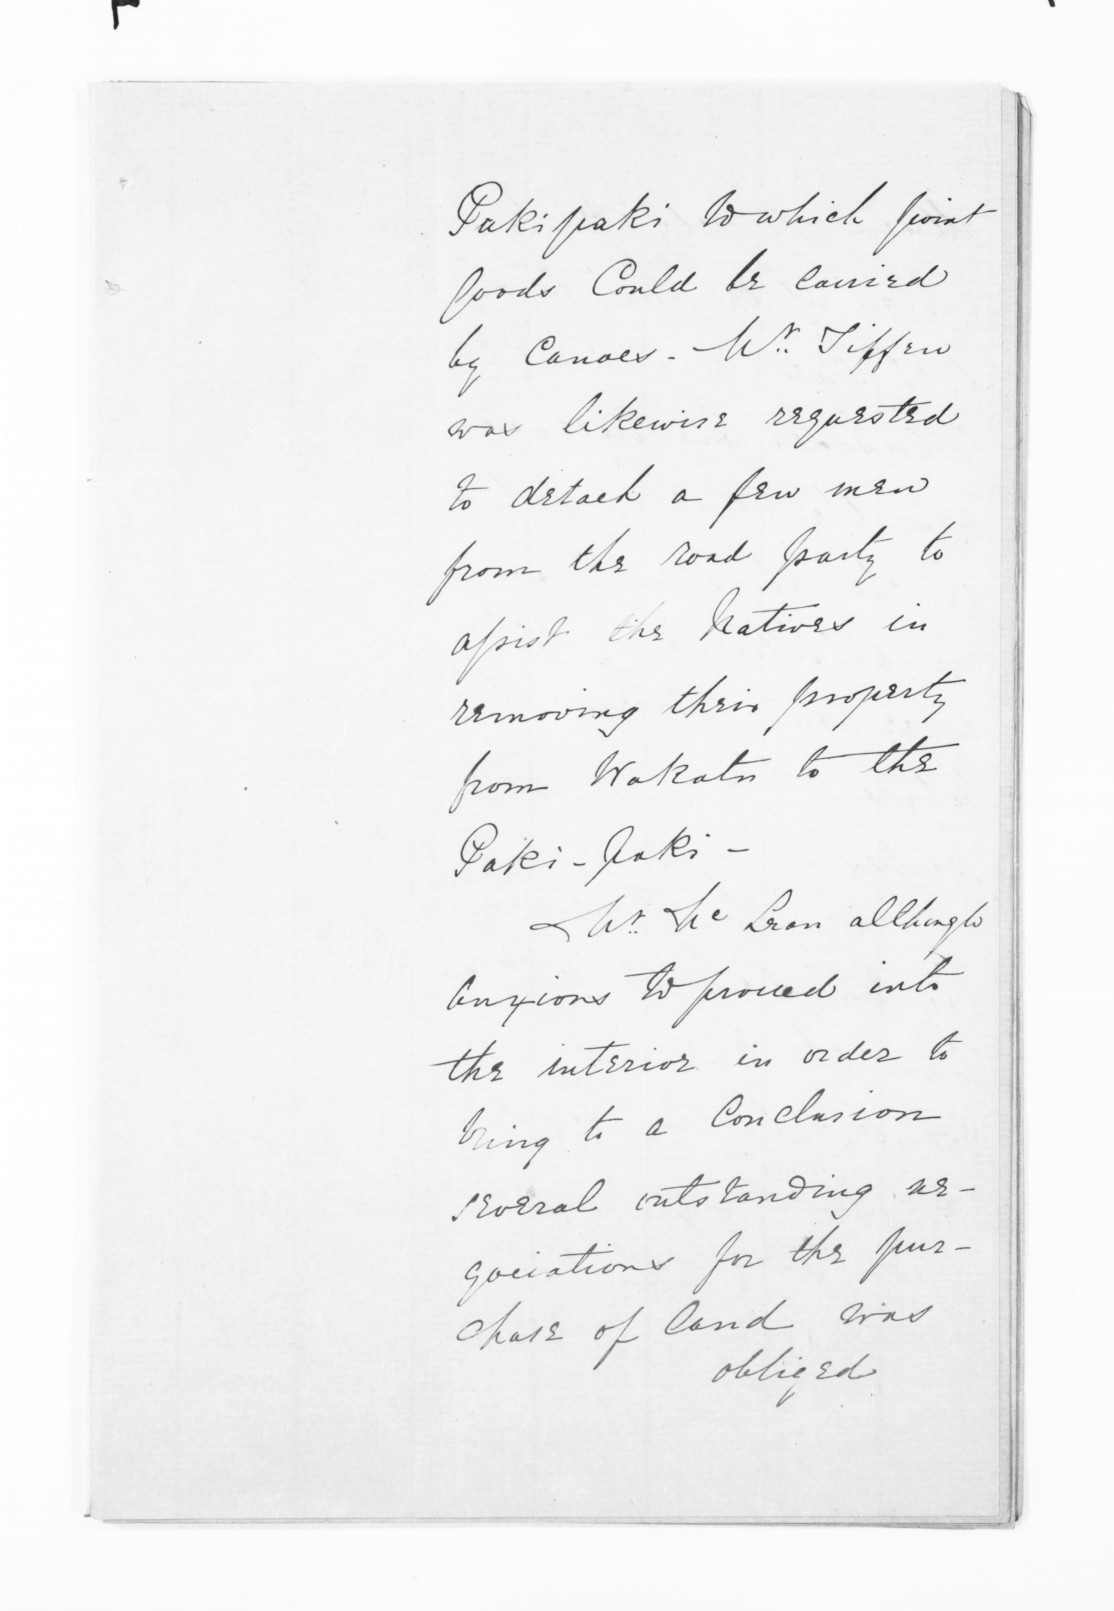 Pakipaki to which point
goods Could be carried
by Canoes - Mr. Tiffen
was likewise requested
to detach a few men
from the road party to
assist the Natives in
removing their property
from Wakatu to the
Paki-paki -
Mr. Mc Lean although
anxious to proceed into
the interior in order to
bring to a Conclusion
several outstanding ne-
gociations for the pur-
chase of land was
obliged